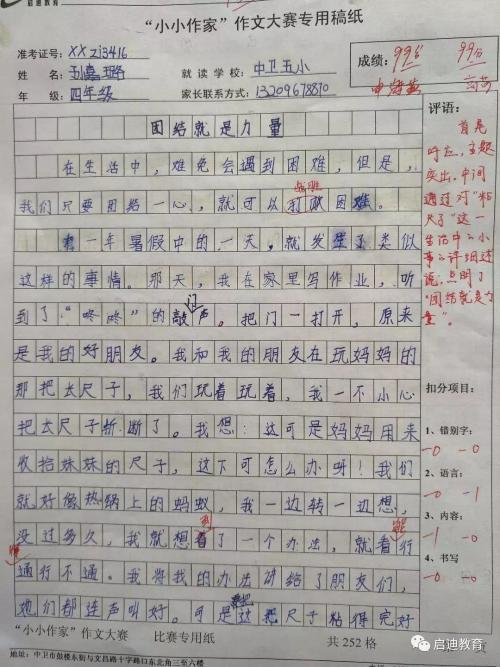 启迪教育
“小小作家”作文大赛专用稿纸
准考证号：XXzj3416
姓 名：
就 读 学 校：中卫五小
年 级：四年级
家长联系方式：13209678870
成绩：99.5 99分
团结就是力量
在生活中，难免会遇到困难，但是，
我们只要团结一心，就可以打败困难。
战胜
有一年暑假中的一天，就发生了类似
这样的事情。那天，我在家里写作业，听
到了“咚咚”的敲门声。把门一打开，原来
是我的好朋友。我和我的朋友在玩妈妈的
那把大尺子，我们玩着玩着，我一不小心
把大尺子折断了。我想：这可是妈妈用来
收拾妹妹的尺子，这下可怎么办呀！我们
就好像热锅上的蚂蚁，我一边转一边想，
没过多久，我就想到了一个办法，就看行
通行不通。我将我的办法讲给了朋友们，
她们都连声叫好。可是这尺子粘得完好
评语：
首尾
呼应，主题
突出，中间
通过对“粘
尺子”这一
生活中的小
事的详细述
说，点明了
“团结就是力
量”。
扣分项目：
1、错别字：
-0 -0
2、语言：
-0 -1
3、内容：
-1 -0
4、书写
-0 -0
“小小作家”作文大赛 比赛专用纸 共 252 格
地址：中卫市鼓楼东街与文昌路十字路口东北角三至六楼
启迪教育